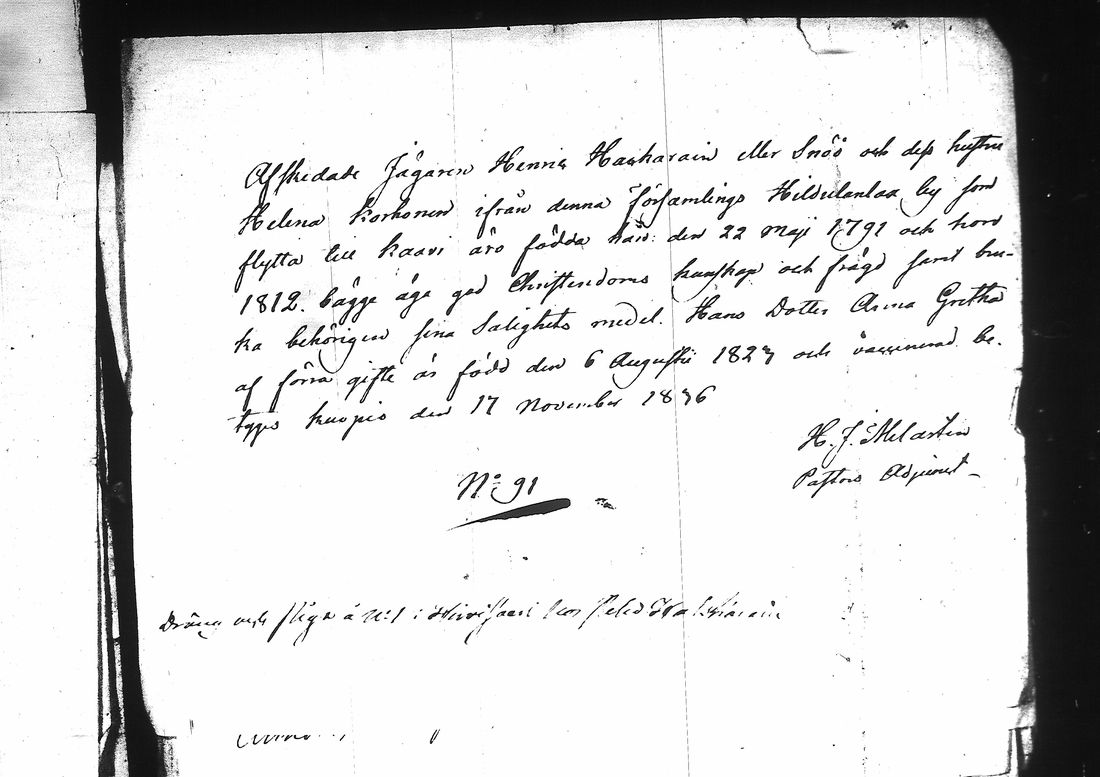 Afskedade Jägaren Henric Hankarain eller Snöö och dess hustru
Helena Korhonen ifrån denna församlings Hirdulanlax by som
flytta till Kaavi äro födda han: den 22 Maji 1791 och hon
1812. bägge äga god Christendoms kunskap och frägd samt bru-
ka behörigen sina Salighets medel. Hans Dotter Anna Gretha
af förra gifte är född den 6 Augustii 1823 och vaccinerad be-
tygas Kuopio den 17 November 1836
H. J. Melartin
Pastors Adjunct
No 91
Dräng och piga å N:1 i Hirvisaari hos